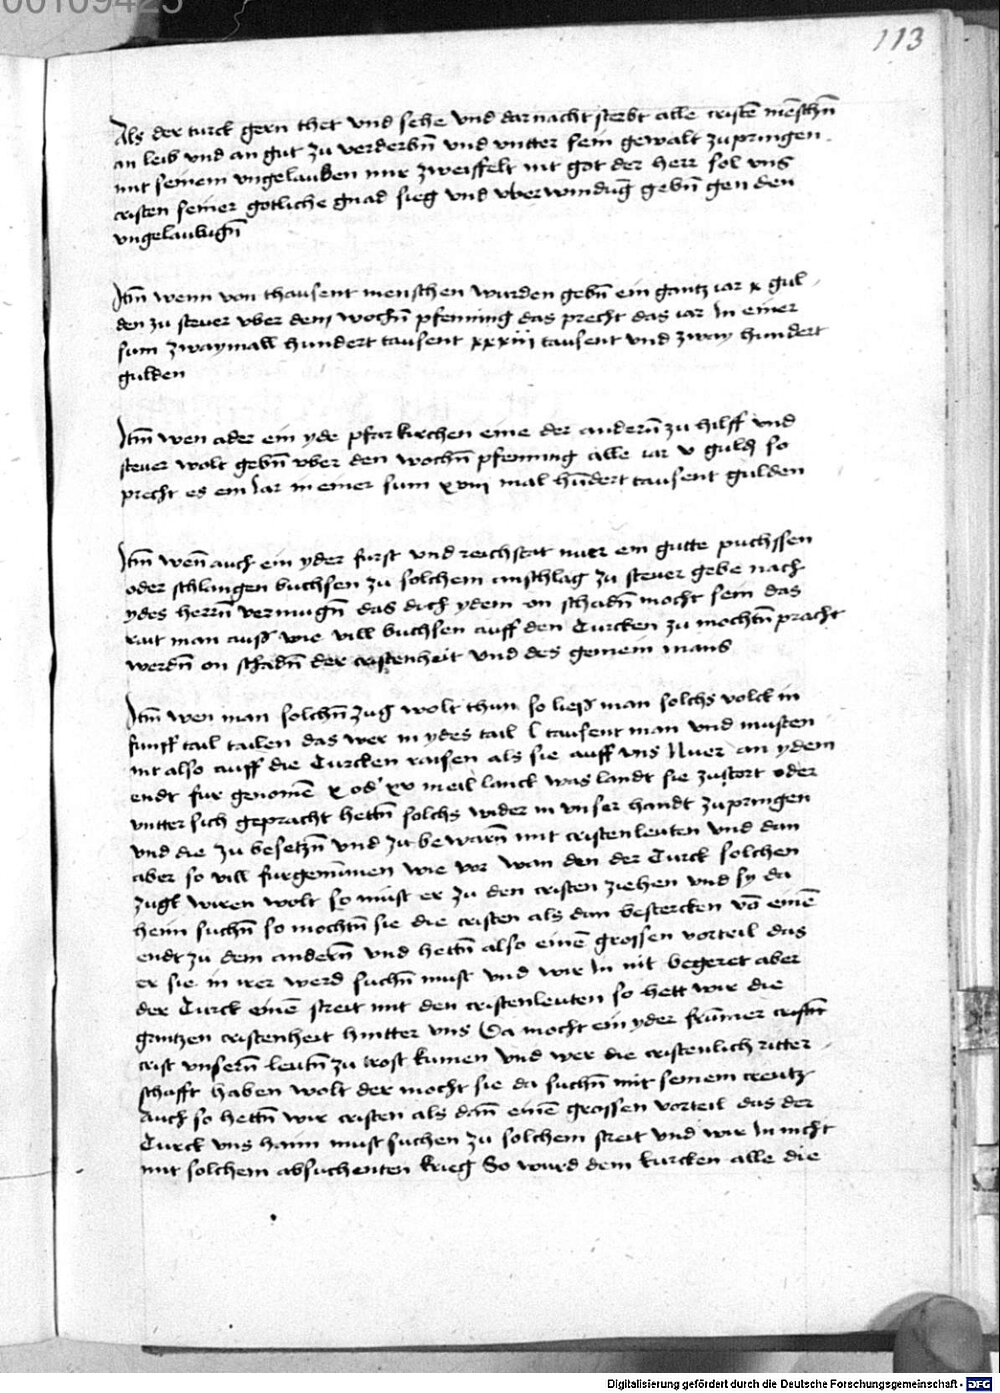 00109425
113
Als der turck gern thet vnd sehe vnd darnacht sterbt alle cristē mēschn̄
an leib vnd an gut zu verderbn̄ vnd vntter sein gewalt zu pringen
mit seinem vngelauben mir zweiffelt nit got der herr sol vns
cristen seiner gotliche gnad sieg vnd vberwindūg gebn̄ gen den
vngelaubign̄
Itm̄ wenn von thausent menschen wurden gebn̄ ein gantz iar x gul
den zu steuer vber dem wochn̄ pfenning das precht das iar In einer
sum zwaymall hundert tausent xxxiii tausent vnd zway hundert
gulden
Itm̄ wen ader ein yde pfarkirchen eine der andern̄ zu hilff vnd
steuer wolt gebn̄ vber den wochn̄ pfenning alle iar v guld so
precht es ein Iar in einer sum xviii mal hūndert tausent gulden
Itm̄ wen̄ auch ein yder furst vnd reichstat nuer ein gutte puchssen
oder schlangen buchsen zu solchem anschlag zu steuer gebe nach
ydes herrn̄ vermugn̄ das dich ydem on schadn̄ mocht sein das
rait man auß wie vill buchsen auff den Turcken zu mochtn̄ pracht
werdn̄ on schadn̄ der cristenheit vnd des gemein mans
Itm̄ wen man solchn̄ zug wolt thun so ließ man solchs volck in
funff tail tailen das wer in ydes tail l tausent man vnd musten
nit also auff die Turcken raisen als sie auff vns Nuer an ydem
endt fur genomē x od' xv meil lanck was landt sie zustort oder
vntter sich gepracht hettn̄ solchs wider in vnser handt zu pringen
vnd die zu besetzn̄ vnd zu bewarn̄ mit cristenleuten vnd dan
aber so vill furgenūmen wie vor wan den der Turck solchen
zugl wiren wolt so must er zu den cristen ziehen vnd sy da
heim suchn̄ so mochtn̄ sie die cristen als dan bestercken vō einē
endt zu dem andern̄ vnd hettn̄ also einē grossen vorteil das
er sie in irer werd suchn̄ must vnd wir In nit begeret aber
der Turck einē streit mit den cristenleuten so hett wir die
gantzen cristenheit hintter vns Da mocht ein yder frūmer cristn̄
crist vnsern̄ leutn̄ zu trost kumen vnd wer die cristenlich ritter
schafft haben wolt der mocht sie da suchn̄ mit seinem creutz
Auch so hettn̄ wir cristen als dan̄ einē grossen vorteil das der
Turck vns haim must suchen zu solchem streit vnd wir In nicht
mit solchem absuchenten krieg So wurd dem turcken alle die
Digitalisierung gefördert durch die Deutsche Forschungsgemeinschaft - DFG